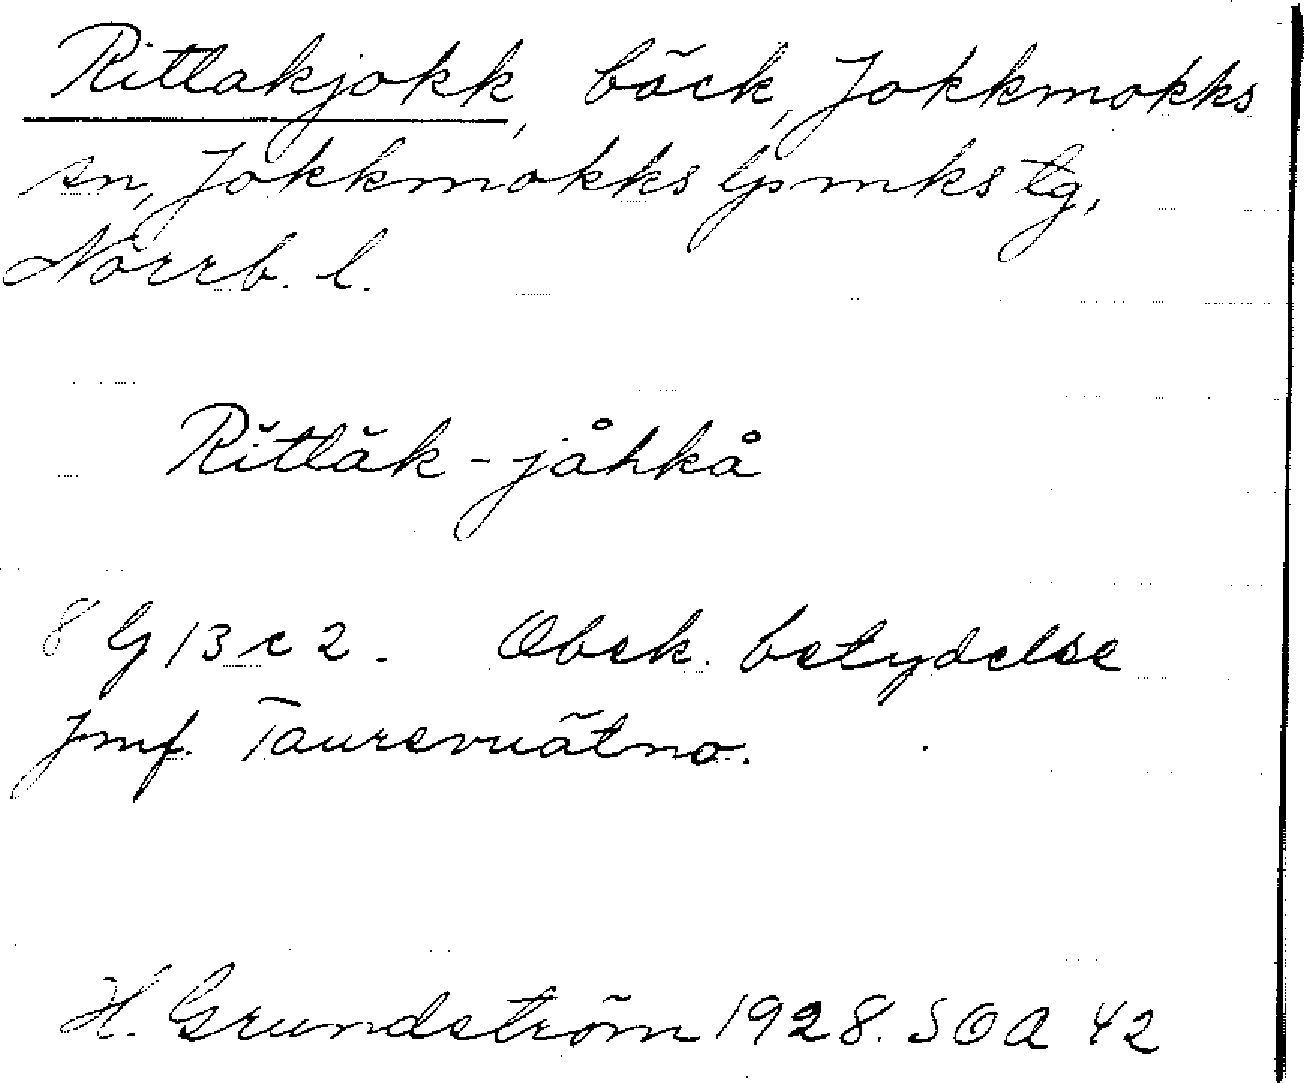 Ritlakjokk, bäck, Jokkmokks
sn, Jokkmokks lpmks tg,
Norrb. l.
Rĭtlăk-jåhkå
8 G 13 c 2. Obek. betydelse
Jmf. Taurevuätno.
H. Grundström 1928. SOA 42